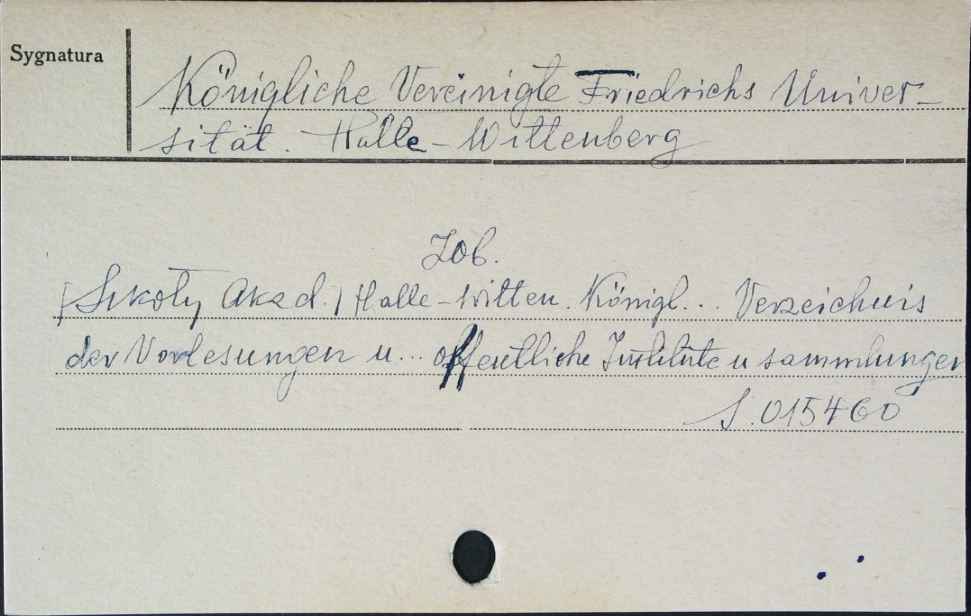 Sygnatura
Königliche Vereinigte Friedrichs Univer-
sität. Halle-Wittenberg
Zob.
[Szkoły Akad.] Halle-Witten. Königl... Verzeichnis
der Vorlesungen u... öffentliche Institute u sammlungen
S. 015460